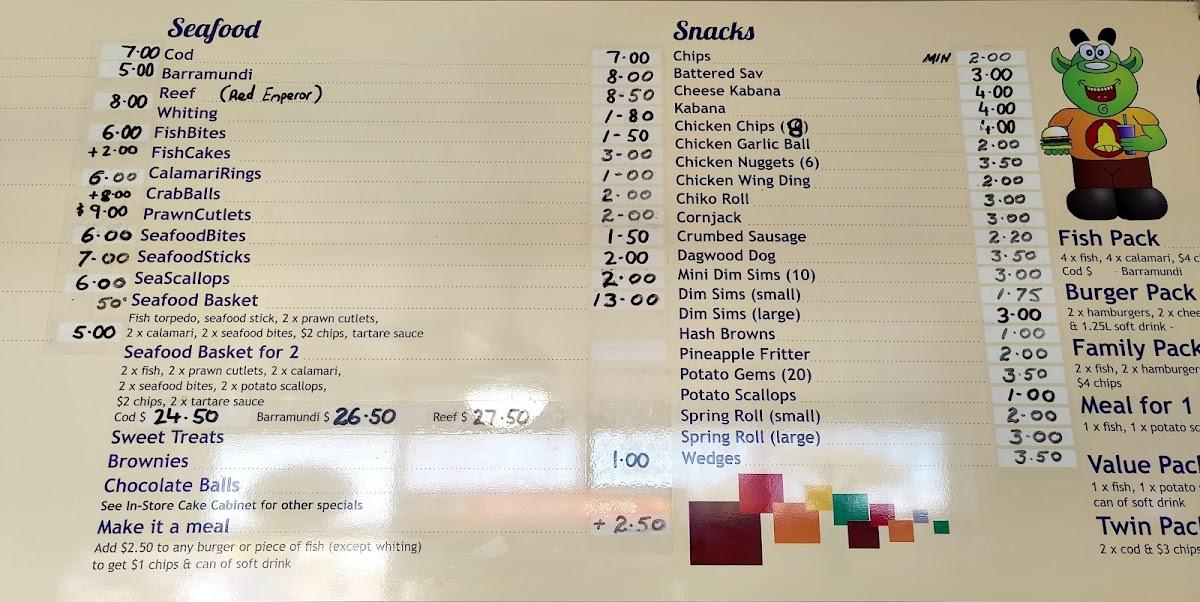 Seafood
7.00 Cod 7.00
5.00 Barramundi 8-00
Reef (Red Emperor) 8-50
8.00 Whiting 1-80
6.00 FishBites 1-50
+2.00 FishCakes 3-00
6.00 CalamariRings 1-00
+8.00 CrabBalls 2-00
$9.00 PrawnCutlets 2-00
6.00 SeafoodBites 1-50
7-00 SeafoodSticks 2-00
6.00 SeaScallops 2.00
50c Seafood Basket 13-00
Fish torpedo, seafood stick, 2 x prawn cutlets,
5.00 2 x calamari, 2 x seafood bites, $2 chips, tartare sauce
Seafood Basket for 2
2 x fish, 2 x prawn cutlets, 2 x calamari,
2 x seafood bites, 2 x potato scallops,
$2 chips, 2 x tartare sauce
Cod $ 24.50 Barramundi $ 26.50 Reef $ 27.50
Sweet Treats
Brownies 1.00
Chocolate Balls
See In-Store Cake Cabinet for other specials
Make it a meal + 2.50
Add $2.50 to any burger or piece of fish (except whiting)
to get $1 chips & can of soft drink
Snacks
Chips MIN 2.00
Battered Sav 3.00
Cheese Kabana 4.00
Kabana 4.00
Chicken Chips (8) 4.00
Chicken Garlic Ball 2.00
Chicken Nuggets (6) 3.50
Chicken Wing Ding 2.00
Chiko Roll 3.00
Cornjack 3.00
Crumbed Sausage 2.20
Dagwood Dog 3.50
Mini Dim Sims (10) 3.00
Dim Sims (small) 1.75
Dim Sims (large) 3-00
Hash Browns 1.00
Pineapple Fritter 2.00
Potato Gems (20) 3.50
Potato Scallops 1-00
Spring Roll (small) 2-00
Spring Roll (large) 3-00
Wedges 3.50
Fish Pack
4 x fish, 4 x calamari, $4 c
Cod $ - Barramundi
Burger Pack
2 x hamburgers, 2 x chee
& 1.25L soft drink -
Family Pack
2 x fish, 2 x hamburger
$4 chips
Meal for 1
1 x fish, 1 x potato sc
Value Pac
1 x fish, 1 x potato
can of soft drink
Twin Pac
2 x cod & $3 chips